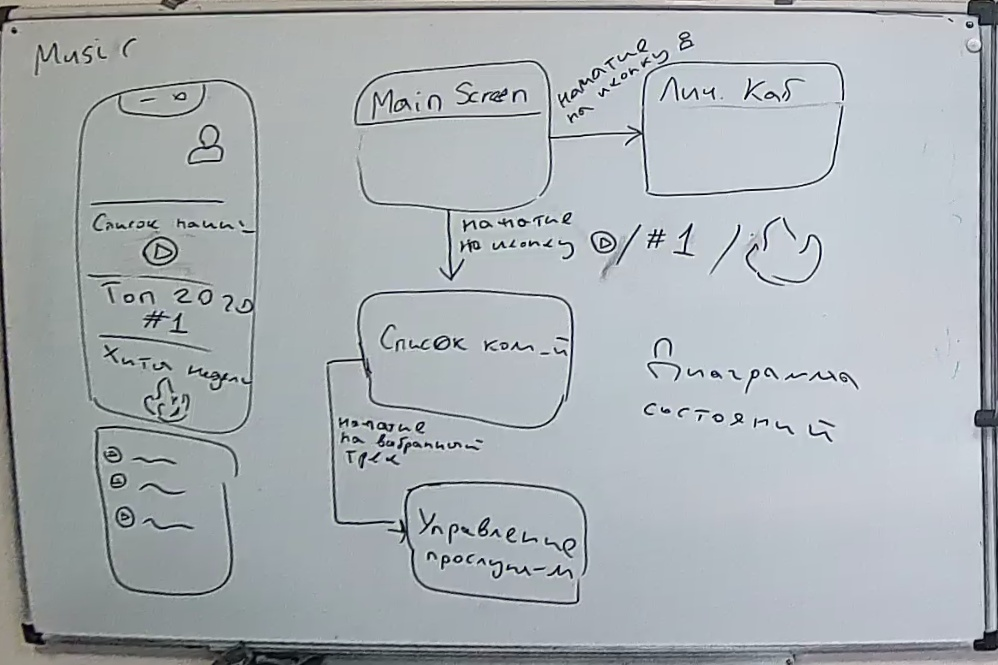 Music
Список
Топ 2020
#1
Хиты недели
Main Screen
нажатие
на иконку
Лич. Каб
нажатие
на иконку / #1 /
Список ком-й
нажатие
на выбранный
трек
Управление
прослуш-м
Диаграмма
состояний